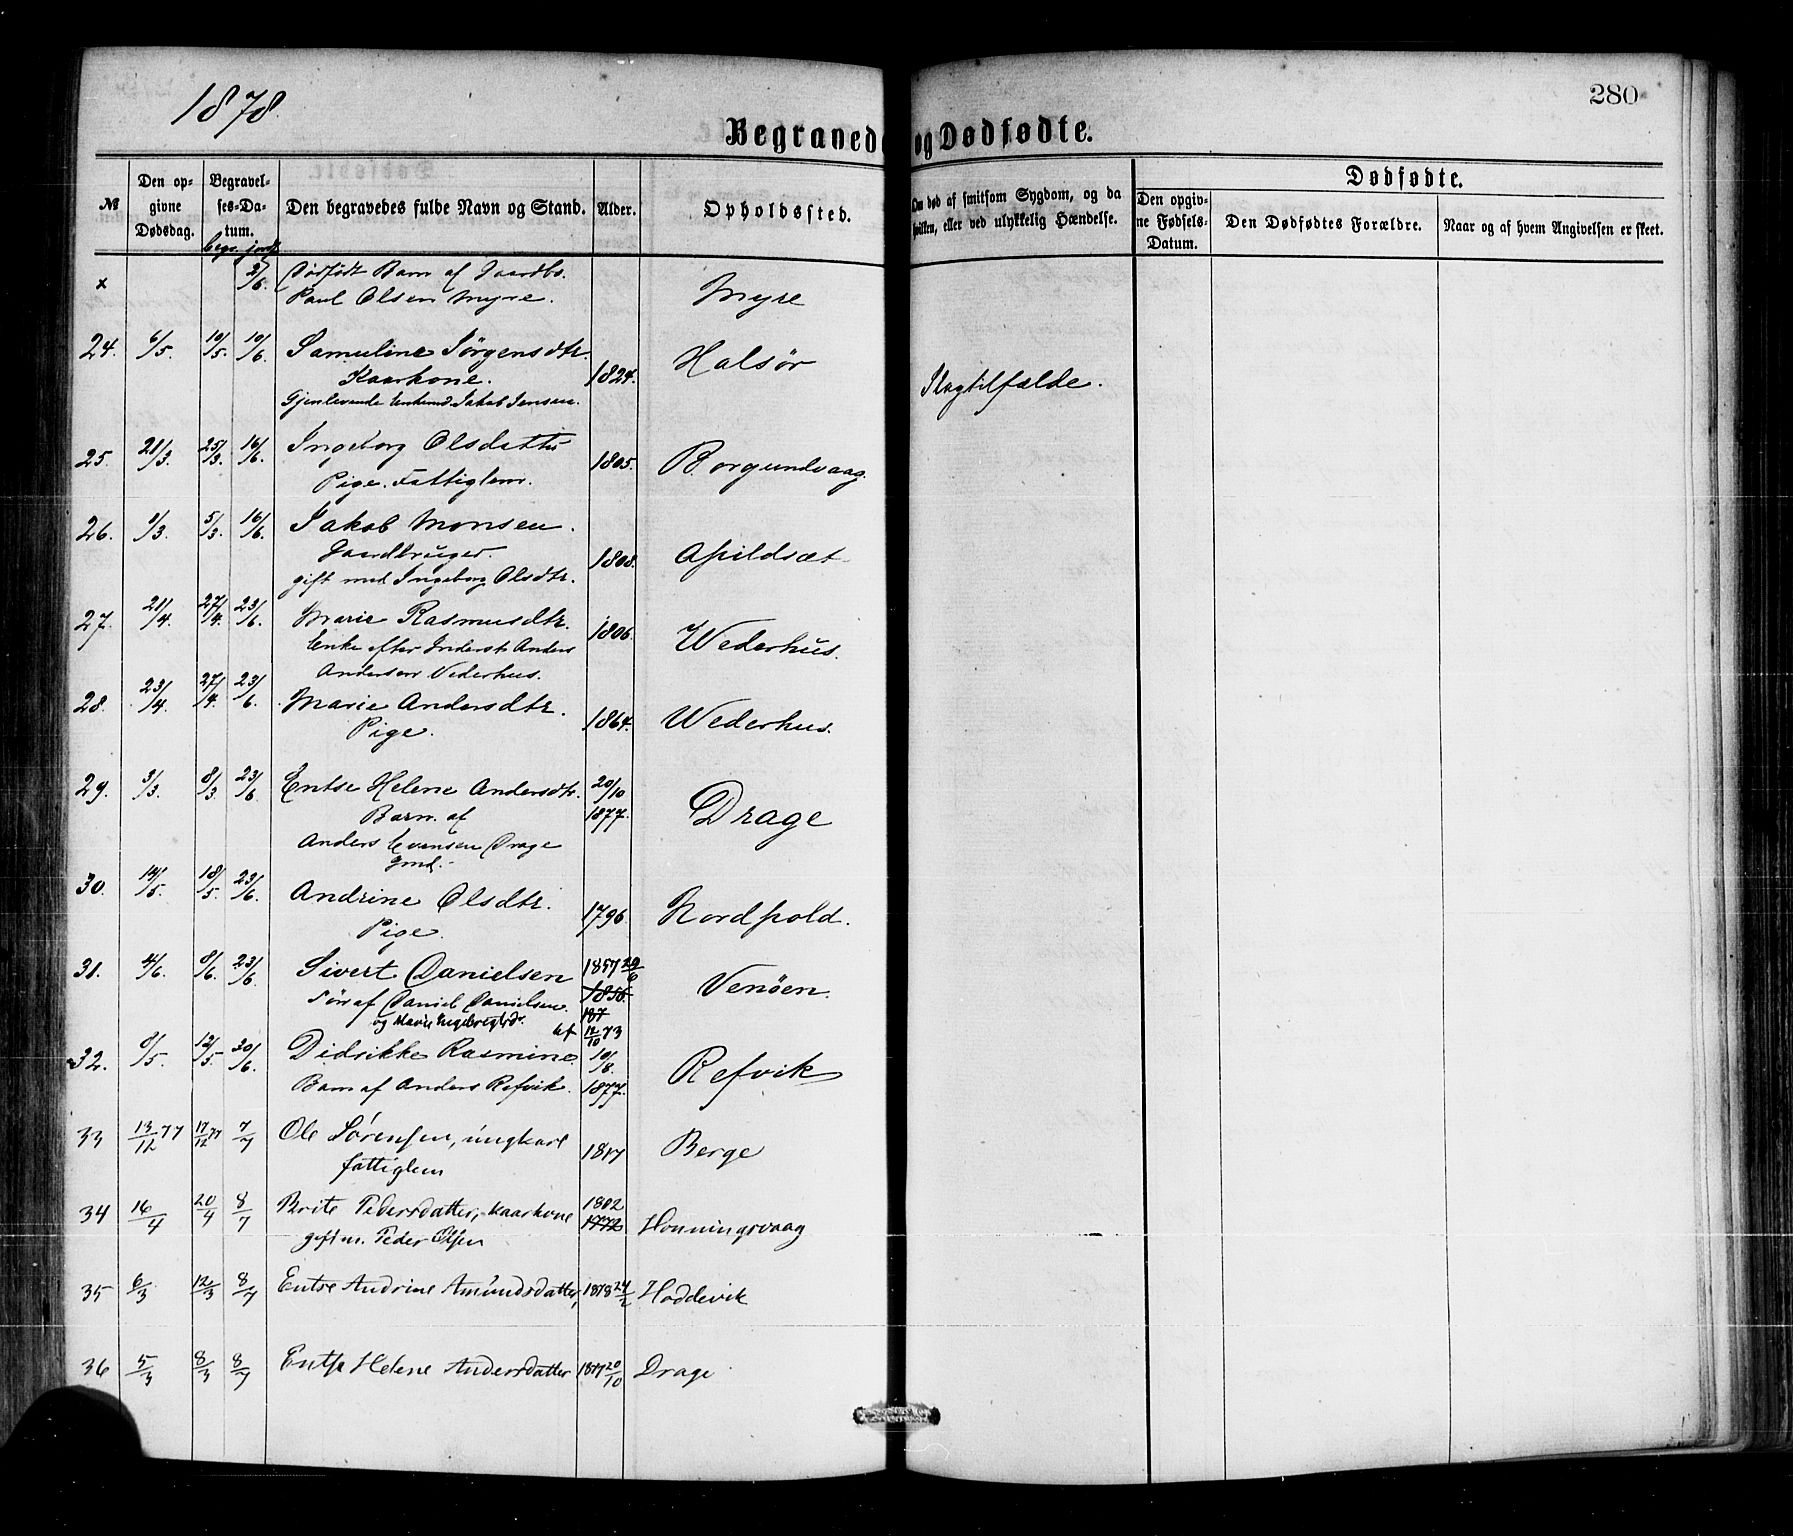 1878.
280
Begravede og Dødfødte.
№
Den opgivne Dødsdag.
Begravelses-Datum.
begr. jordf.
Den begravedes fulde Navn og Stand.
Alder.
Opholdssted.
Om død af smitsom Sygdom, og da hvilken, eller ved ulykkelig Hændelse.
Dødfødte.
Den opgivne Fødsels-Datum.
Den Dødfødtes Forældre.
Naar og af hvem Angivelsen er skeet.
x 2/6. Dødfødt Barn af Gaardbr.
Paul Olsen Myre. Myre
24. 6/5. 10/5. 10/6. Samuline Jørgensdtr. 1824. Halsør Slagtilfælde.
Kaarkone.
Gjenlevende Enkemd. Jakob Jensen.
25. 21/3. 25/3. 16/6. Ingeborg Olsdatter 1805. Borgundvaag.
Pige. Fattiglem.
26. 1/3. 5/3. 16/6. Jakob Monsen. 1808. Apildsæt
Gaardbruger.
gift med Ingeborg Olsdtr.
27. 21/4. 27/4. 23/6. Marie Rasmusdtr. 1806. Wederhus.
Enke efter Inderst Anders
Andersen Vederhus.
28. 23/4. 27/4. 23/6. Marie Andersdtr. 1864. Wederhus.
Pige.
29. 3/3. 8/3. 23/6. Entse Helene Andersdtr. 20/10 1877. Drage
Barn af
Anders Evensen Drage
Gmd.
30. 14/5. 18/5. 23/6. Andrine Olsdtr. 1796. Nordpold.
Pige.
31. 4/6. 8/6. 23/6. Sivert Danielsen 1857 29/6 1856. Venöen.
Søn af Daniel Danielsen. 187
og Marie Ingebrigtsdr. af 12/10 73
32. 8/5. 12/5. 30/6. Didrikke Rasmine 10/8. 1877. Refvik
Barn af Anders Refvik.
33 13/12 77 17/12 77 7/7 Ole Sørensen, ungkarl 1817 Berge
fattiglem
34 16/4 20/4 8/7 Brite Pedersdatter, kaarkone 1802 1772 Honningsvaag
gift m. Peder Olsen
35 6/3 12/3 8/7 Entse Andrine Amundsdatter, 1878 24/2 Hoddevik
36 5/3 8/3 8/7 Entse Helene Andersdatter 1877 20/10 Drage